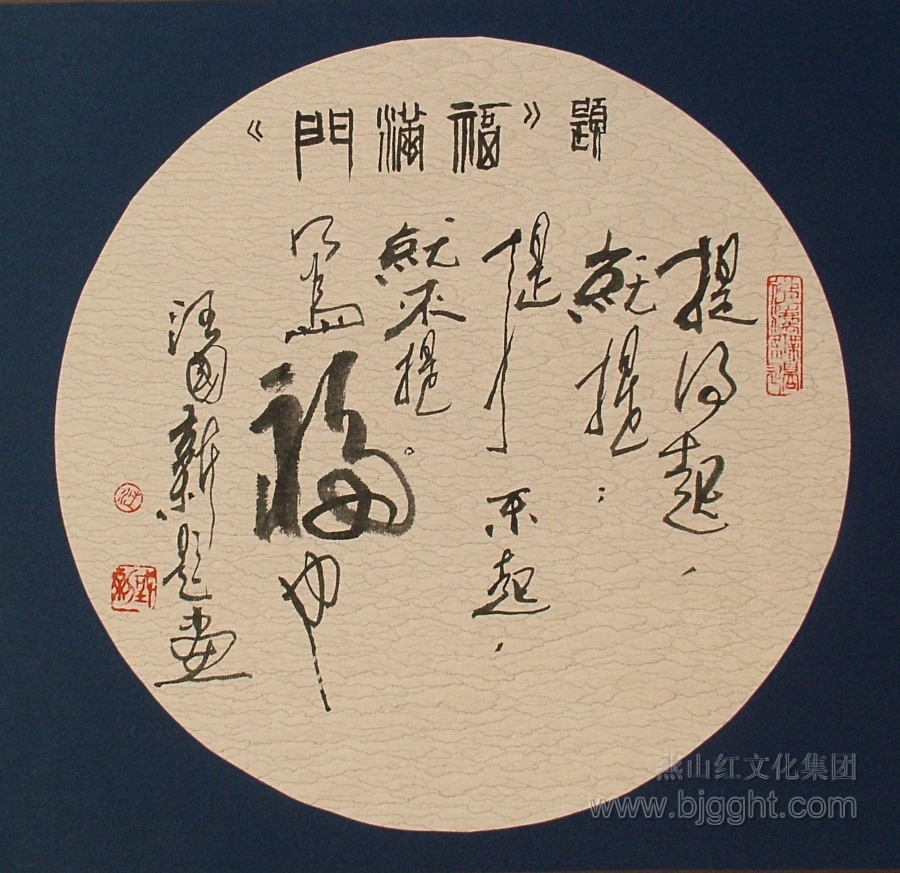 題《福滿門》
提得起，
就提；
提不起，
就不提。
為福也
汪國新題畫
燕山红文化集团
www.bjgght.com